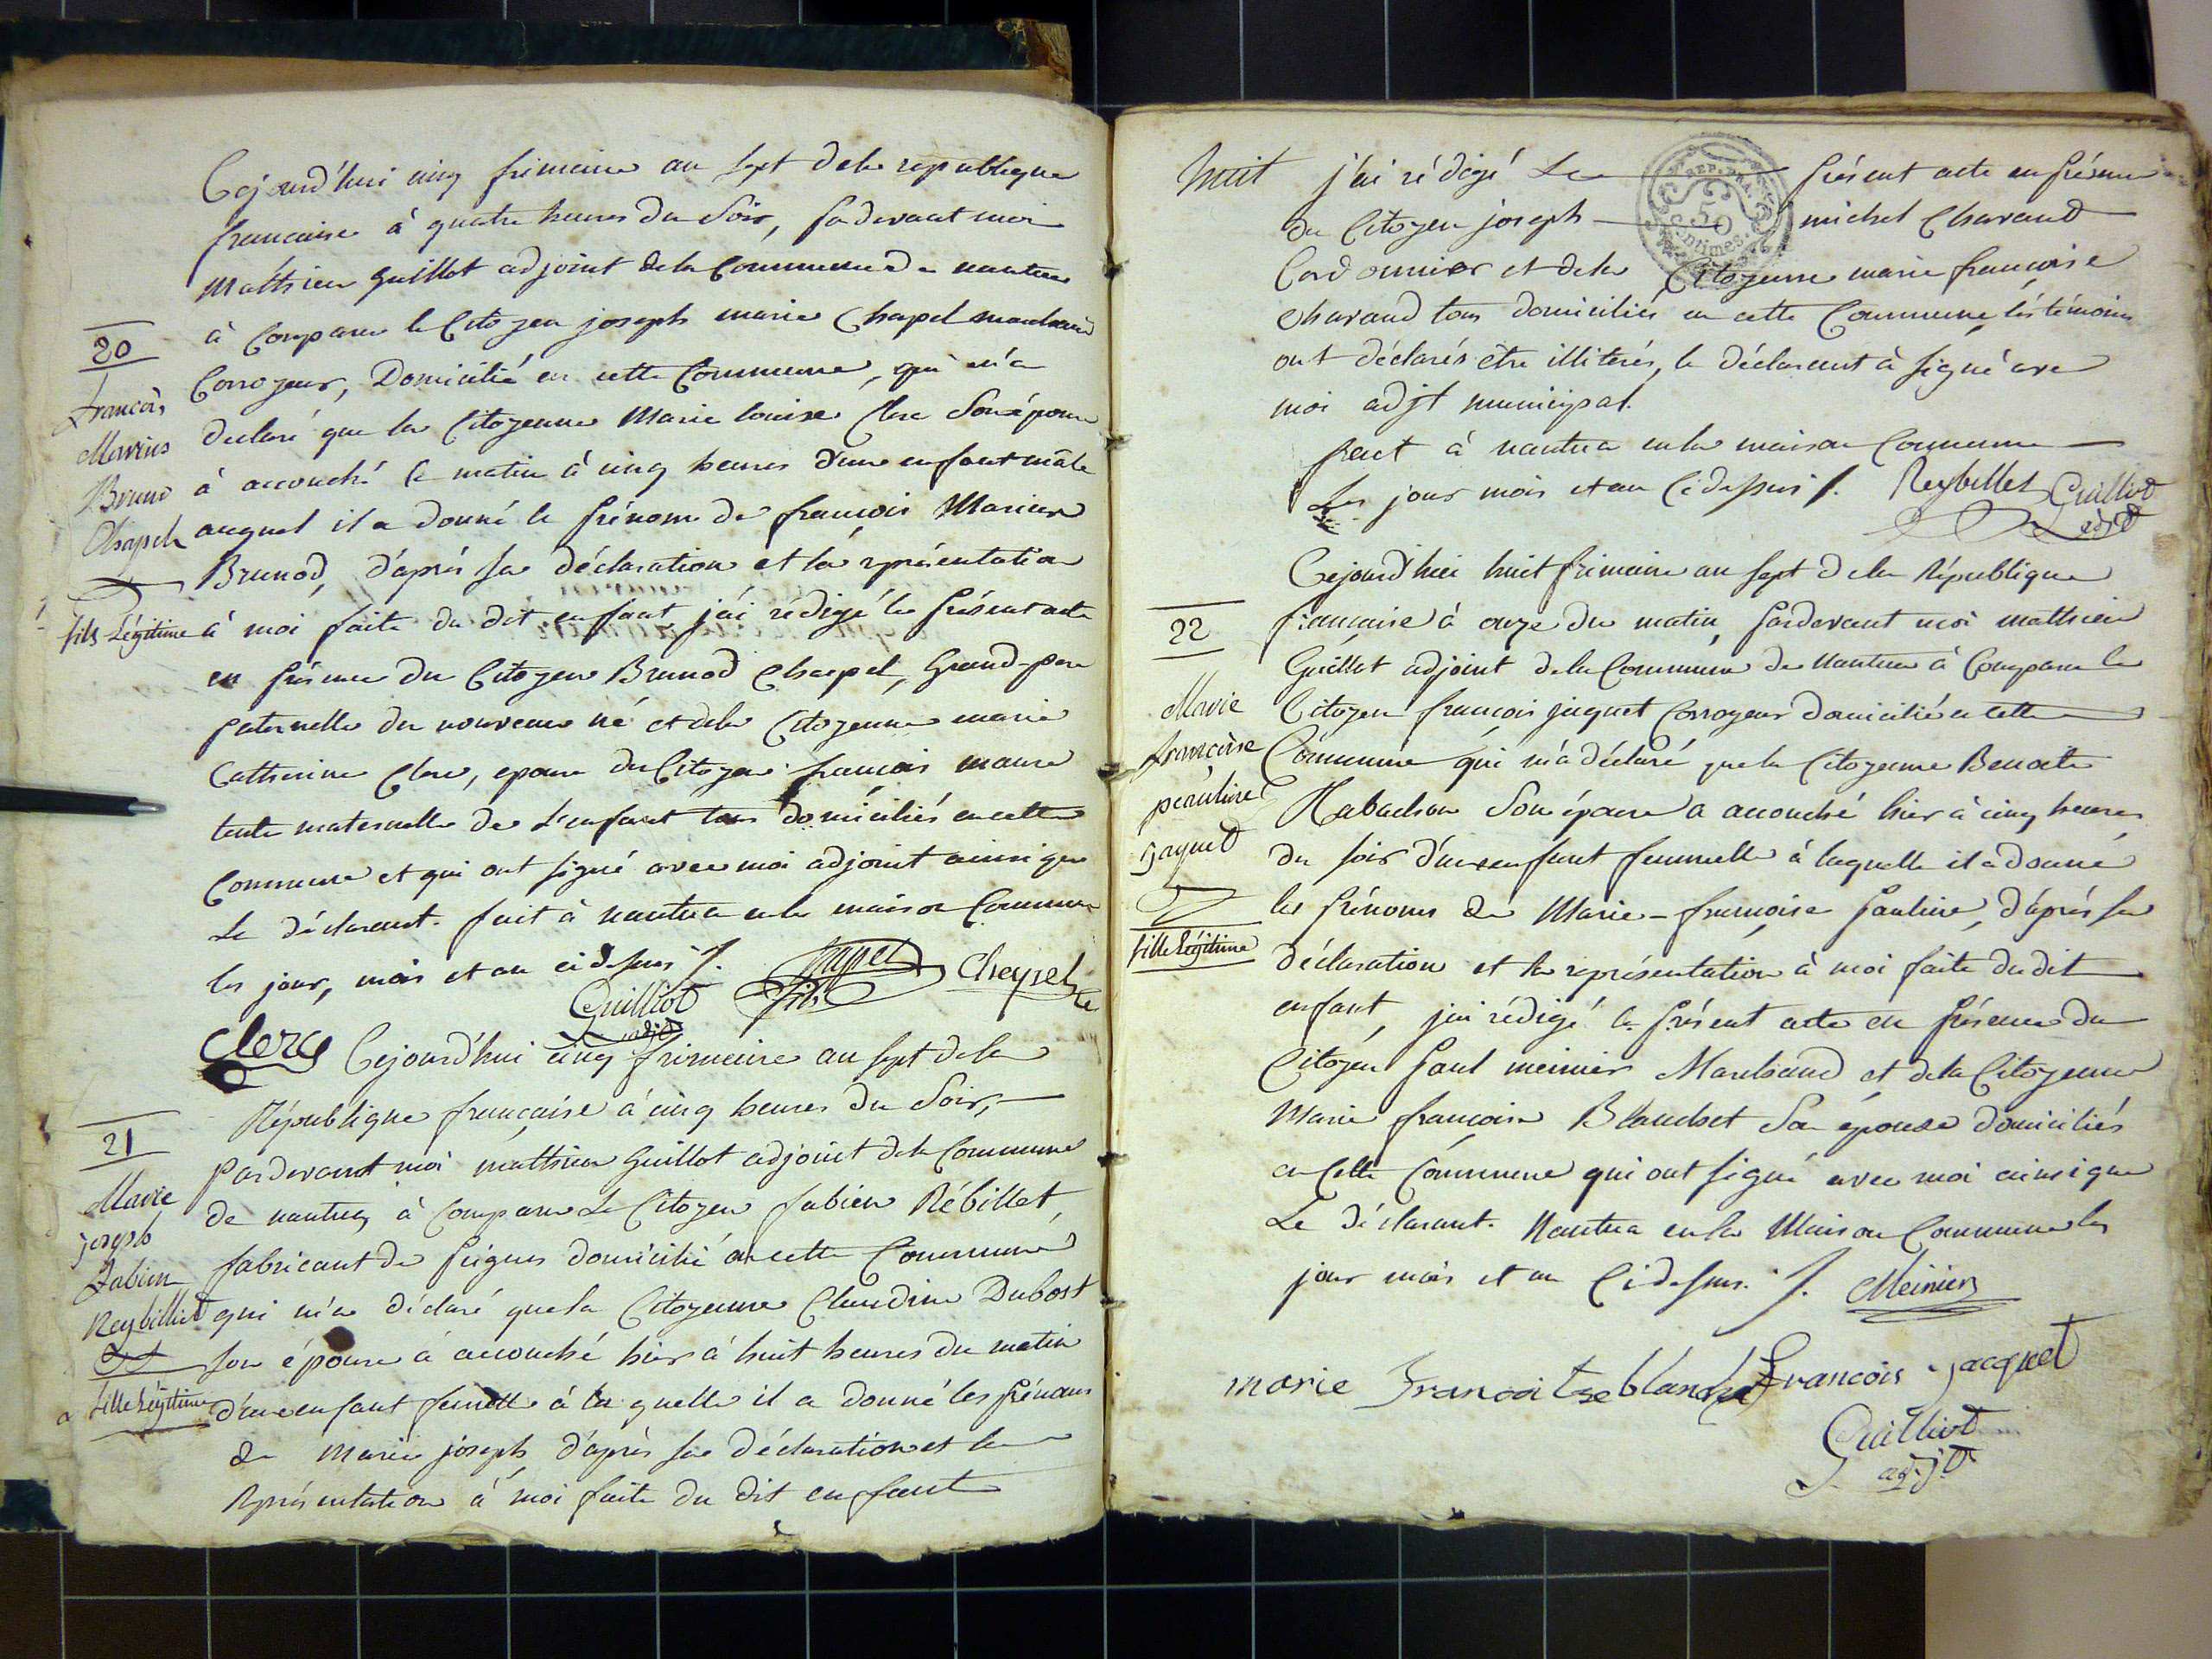 Cejourd'hui cinq frimaire an sept de la republique
francaise à quatre heures du Soir, pardevant moi
Matthieu Guillot adjoint de la Commune de nantua
à Comparu le Citoyen joseph marie Chapel marchand
Corroyeur, Domicilié en cette Commune, qui m'a
declaré que la Citoyenne Marie louise Clerc Son épouse
à accouché ce matin à cinq heures d'un enfant mâle
auquel il a donné le prénom de francois Marius
Brunod, d'après sa déclaration et la représentation
à moi faite du dit enfant, j'ai rédigé le présent acte
en présence du Citoyen Brunod Chapel, Grand-père
paternelle du nouveau né et de la Citoyenne marie
Catherine Clerc, epouse du Citoyen francois
tente maternelle de L'enfant tous domiciliés en cette
Commune et qui ont signé avec moi adjoint ainsi que
Le déclarant. fait à nantua en la maison Commune
les jour, mois et an ci dessus /.
20
francois
Marius
Bruno
Chapel
fils Légitime
Chapel fils
Guilliot adjt
Clerc
Cejourd'hui cinq frimaire an sept de la
République francaise à cinq heures du Soir,
Pardevant moi matthieu Guillot adjoint de la Commune
de nantua, à Comparu Le Citoyen fabien Rébillet,
fabricant de peignes domicilié en cette Commune
qui m'a déclaré que la Citoyenne Claudine Dubost
son épouse à accouché hier à huit heures du matin
d'un enfant femelle à la quelle il a donné les prénoms
de marie joseph, d'après sa déclaration et la
Représentation à moi faite du dit enfant
21
Marie
joseph
fabien
Reybillet
fille Légitime
huit j'ai rédigé Le présent acte en présence
REP. FRA.
50
Centimes.
du Citoyen joseph michel Charaud
Cordonnier et de la Citoyenne marie francoise
Charaud tous domiciliés en cette Commune, les témoins
ont déclarés être illiterés, le déclarant à signé avec
moi adjt municipal.
fait à nantua en la maison Commune
Les jour mois et an Ci dessus /. Reybillet Guilliot
adjt
Cejourd'hui huit frimaire an sept de la République
francaise à onze du matin, pardevant moi matthieu
Guillot adjoint de la Commune de Nantua à Comparu le
Citoyen francois jaquet Corroyeur domicilié en cette
Commune qui m'a déclaré que la Citoyenne Benoite
Son épouse a accouché hier à cinq heures
du soir d'un enfant femmelle à laquelle il a donné
les prénoms de Marie-françoise pauline, d'après sa
déclaration et la représentation à moi faite du dit
enfant, j'ai rédigé le présent acte en présence du
Citoyen paul meinier Marchand et de la Citoyenne
Marie francoise Blanchet Son épouse domiciliés
en Cette Commune qui ont signé avec moi ainsi que
Le déclarant. Nantua en la Maison Commune les
jour mois et an Ci dessus. /. Meinier
22
Marie
francoise
peauline
jaquet
fille Légitime
marie Francoise blanchet francois jacquet
Guilliot
adjt